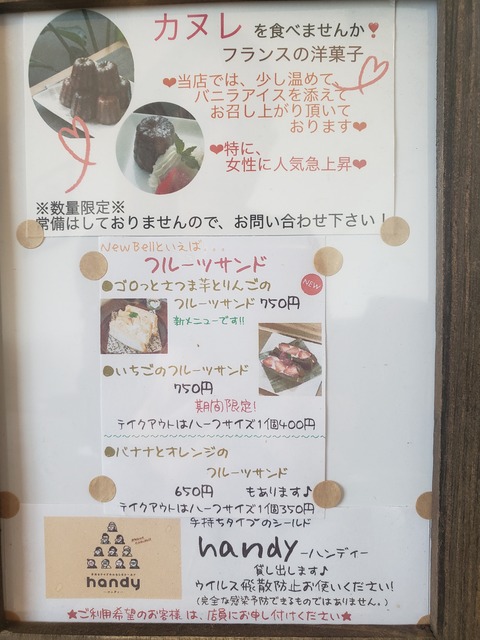 カヌレ を食べませんか❣
フランスの洋菓子
❤当店では、少し温めて、
バニラアイスを添えて
お召し上がり頂いて
おります❤
❤特に、
女性に人気急上昇❤
※数量限定※
常備はしておりませんので、お問い合わせ下さい！
NewBellといえば...
フルーツサンド
●ゴロっとさつま芋とりんごの
NEW
フルーツサンド 750円
新メニューです!!
●いちごのフルーツサンド
750円
期間限定!
テイクアウトはハーフサイズ1個400円
●バナナとオレンジの
フルーツサンド
650円 もあります♪
テイクアウトはハーフサイズ1個350円
手持ちタイプのシールド
handy -ハンディー
貸し出します♪
ウイルス飛散防止お使いください!
(完全な感染予防できるものではありません。)
handy
★ご利用希望のお客様は、店員にお申し付けください★